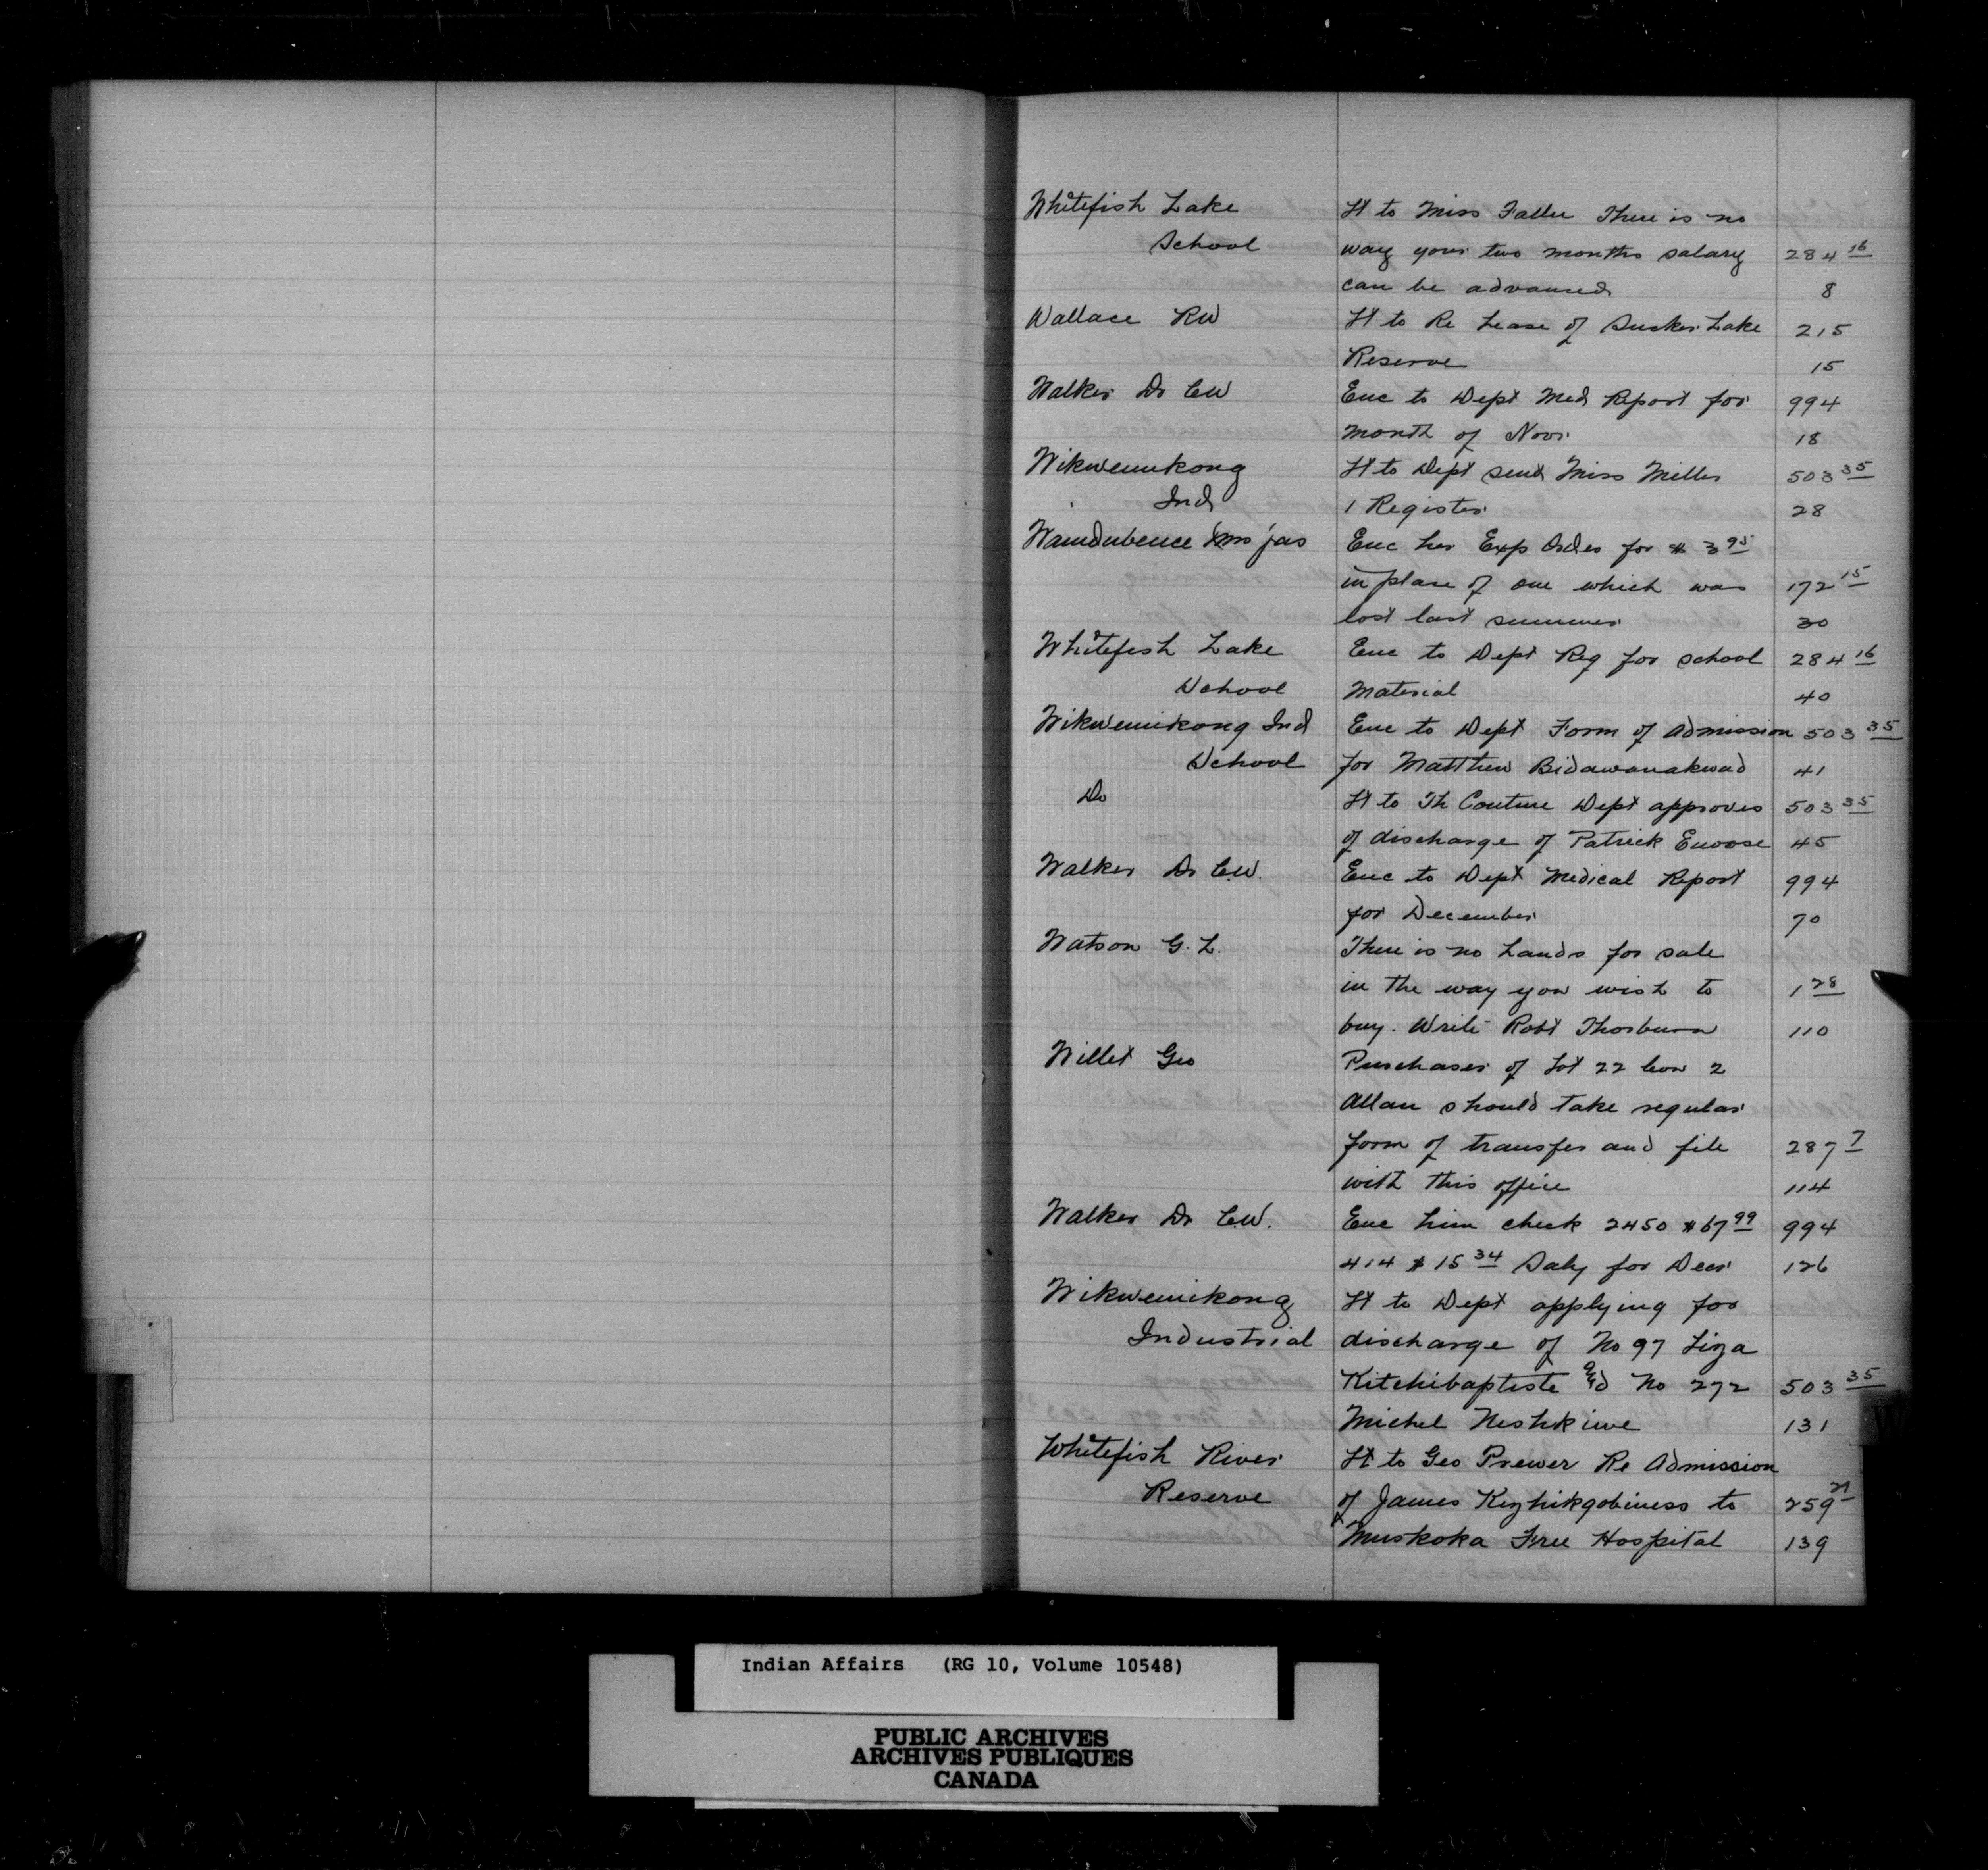 Whitefish Lake Lt to Miss Faller There is no
School way your two months salary 284 16
can be advanced 8
Wallace RW Lt to Re Lease of Sucker Lake 215
Reserve 15
Walker Dr CW Enc to Dept Med Report for 994
month of Novr 18
Wikwemikong Lt to Dept send Miss Miller 503 35
Ind 1 Register 28
Mrs Jas Enc her Exp Order for $ 3 95
in place of one which was 172 15
lost last summer 30
Whitefish Lake Enc to Dept Req for school 284 16
School Material 40
Wikwemikong Ind Enc to Dept Form of Admission 503 35
School for Matthew Bidawanakwad 41
Do Lt to Th Couture Dept approves 503 35
of discharge of Patrick Enoose 45
Walker Dr C.W. Enc to Dept Medical Report 994
for December 70
Watson G. L. There is no Lands for sale
in the way you wish to 1 28
buy. Write Robt Thorburn 110
Willet Geo Purchaser of Lot 22 Con 2
Allan should take regular
form of transfer and file 287 7
with this office 114
Walker Dr C.W. Enc him check 2450 $67 99 994
414 $ 15 34 Saly for Decr 126
Wikwemikong Lt to Dept applying for
Industrial discharge of No 97 Liza
Kitchibaptiste and No 272 503 35
Michel Neshkiwe 131
Whitefish River Lt to Geo Prewer Re Admission
Reserve of James Kezhikgobiness to 259 21
Muskoka Free Hospital 139
Indian Affairs (RG 10, Volume 10548)
PUBLIC ARCHIVES
ARCHIVES PUBLIQUES
CANADA